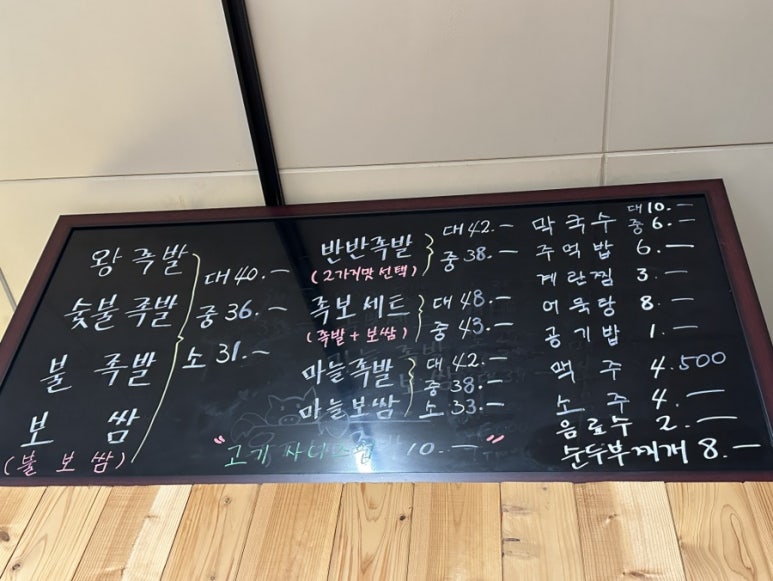 왕 족발
숯불 족발
불 족발
보 쌈
(불 보쌈)
대 40.—
중 36.—
소 31.—
반반족발
(2가지맛 선택)
대 42.—
중 38.—
족보세트
(족발 + 보쌈)
대 48.—
중 43.—
마늘족발
마늘보쌈
대 42.—
중 38.—
소 33.—
"고기 10.—"
막국수 대 10.— 중 6.—
주먹밥 6.—
계란찜 3.—
어묵탕 8.—
공기밥 1.—
맥주 4.500
소주 4.—
음료수 2.—
순두부찌개 8.—